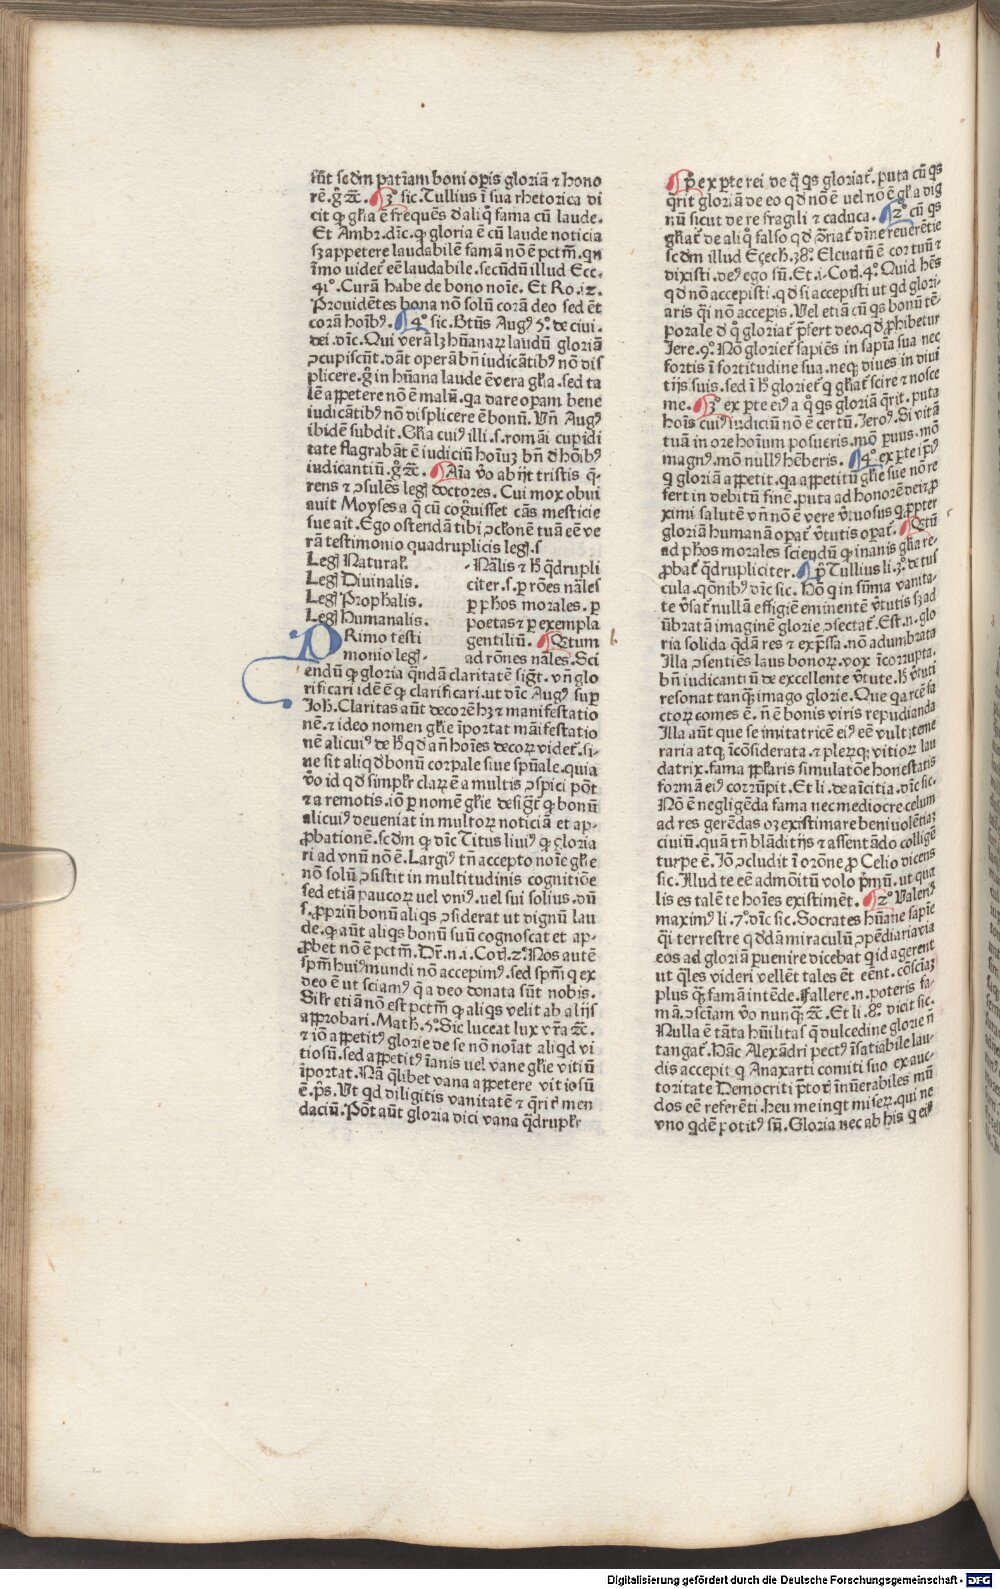 sūt scdm patīam boni oꝑis gloriā ⁊ hono
rē.g̊ ⁊c̄. ¶ 3° sic. Tullius ī sua rhetorica di
cit ꝙ gl̄ia ē frequēs d̄ aliq̄ fama cū laude.
Et Ambꝛ.dīc.ꝙ gloria ē cū laude noticia
sꝫ appetere laudabilē famā nō ē pctm̄.qn
īmo uidet̄ eē laudabile.secūdū illud Ecc.
41°.Curā habe de bono noīe. Et Ro.12.
Prouidētes bona nō solū corā deo sed ēt
corā hoībꝰ. ¶ 4° sic. Btūs Augꝰ 5°.de ciui.
dei.dīc. Qui verā lꝫ hūanaꝝ laudū gloriā
ↄcupiscūt.dāt operā bn̄ iudicātibꝰ nō dis
plicere.g̊ in hūana laude ē vera gl̄ia.sed ta
lē appetere nō ē malū.qa dare opam bene
iudicātibꝰ nō displicere ē bonū. Vn̄ Augꝰ
ibidē subdit. Gl̄ia cuiꝰ illi.s.romāi cupidi
tate flagrabāt ē iudiciū hoīuꝫ bn̄ d̄ hoībꝰ
iudicantiū.g̊ ⁊c̄. ¶ Aīa v̊o abijt tristis q̄-
rens ⁊ ↄsulēs legꝭ doctores. Cui mox obui
auit Moyses a q̄ cū cogn̄uisset cās mesticie
sue ait. Ego ostendā tibi ↄclonē tuā eē ve
rā testimonio quadruplicis legꝭ.s
Legꝭ Natural̄.
Legꝭ Diuinalis.
Legꝭ Prophalis.
Legꝭ Humanalis.
PRimo testi
monio legꝭ.
Nālis ⁊ h̄ q̄drupli
citer.s.ꝑ rōes nāles
ꝑ ꝑhos morales.ꝑ
poetas ⁊ ꝑ exempla
gentiliū. ¶ Qtum
ad rōnes nāles.Sci
endū ꝙ gloria q̄ndā claritatē sigt̄.vn̄ glo
rificari idē ē ꝙ clarificari.ut dīc Augꝰ suꝑ
Joh̄.Claritas aūt decorē hꝫ ⁊ manifestatio
nē.⁊ ideo nomen gl̄ie īportat māifestatio
nē alicuiꝰ de h̄ qd̄ an̄ hoīes decoꝝ videt̄.si-
ne sit aliqd̄ bonū corpale siue spūale.quia
v̊o id qd̄ simpl̄r claꝝ ē a multis ↄspici pōt
⁊ a remotis.iō ꝑ nomē gl̄ie desigt̄ ꝙ bonū
alicuiꝰ deueniat in multoꝝ noticiā et ap-
ꝓbationē.scdm ꝙ dīc Titus liuiꝰ ꝙ gloria
ri ad vnū nō ē. Largiꝰ tn̄ accepto noīe gl̄ie
nō solū ↄsistit in multitudinis cognitiōe
sed etiā paucoꝝ uel vniꝰ.uel sui solius.dū
s.ꝓpriū bonū aliqs ↄsiderat ut dignū lau
de.ꝙ aūt aliqs bonū suū cognoscat et ap-
ꝓbet nō ē pctm̄.Dr̄.n.i.Cor̄.2°.Nos autē
spm̄ huiꝰ mundi nō accepimꝰ.sed spm̄ q ex
deo ē ut sciamꝰ q̄ a deo donata sūt nobis.
Sil̄r etiā nō est pctm̄ ꝙ aliqs velit ab alijs
approbari.Math̄.5°.Sic luceat lux vr̄a ⁊c̄.
⁊ iō appetitꝰ glorie de se nō noīat aliqd vi
tiosū.sed appetitꝰ īanis uel vane gl̄ie vitiū
īportat. Nā q̄libet vana appetere vitiosū
ē.p̄s.Vt qd diligitis vanitatē ⁊ q̄rit̄ men
daciū.Pōt aūt gloria dici vana q̄drupl̄r
¶ P̊ ex ꝑte rei de q̄ qs gloriat̄.puta cū qs
q̄rit gloriā de eo qd nō ē uel nō ē gl̄ia dig
nū sicut de re fragili ⁊ caduca. ¶ 2° cū qs
gl̄iat̄ de aliq̄ falso
scdm illud Ezech.38°.Eleuatū ē cor tuū ⁊
dixisti.deꝰ ego sū.Et.i.Cor̄.4°.Quid hēs
qd nō accepisti.qd si accepisti ut qd glori-
aris q̄i nō acceꝑis.Vel etiā cū qs bonū tē-
porale d̄ q̄ gloriat̄ p̄fert deo.qd ꝓhibetur
Jere.9°.Nō gloriet̄ sapiēs in sapīa sua nec
fortis ī fortitudine sua.neqꝫ diues in diui
tijs suis.sed ī h̄ gloriet̄ q gl̄iat̄ scire ⁊ nosce
me. ¶ 3° ex ꝑte eiꝰ a q̄ qs gloriā q̄rit.puta
hoīs cuiꝰ iudiciū nō ē certū.Jeroꝰ.Si vitā
tuā in ore hoīum posueris.mō ꝑuus.mō
magnꝰ.mō nullꝰ hēberis. ¶ 4° ex ꝑte ip̄iꝰ
q gloriā appetit.qa appetitū gl̄ie sue nō re
fert in debitū finē.puta ad honorē dei ⁊ ꝓ
ximi salutē vn̄ nō ē vere v̄tuosus q ꝓpter
gloriā humanā opat̄ v̄tutis opa. ¶ Qtū
ad ꝑhos morales sciendū ꝙ inanis gl̄ia re-
ꝓbat̄ q̄drupliciter. ¶ P̊ Tullius li.3°.de tus
cula.qōnibꝰ dīc sic. Hō q in sūma vanita-
te v̄sat̄ nullā effigiē eminentē v̄tutis sꝫ ad
ūbratā imaginē glorie ↄsectat̄.Est.n.glo
ria solida q̄dā res ⁊ exp̄ssa.nō adumbrata
Illa ↄsentiēs laus bonoꝝ.vox īcorrupta.
bn̄ iudicantiū de excellente v̄tute.h̄ v̄tuti
resonat tanqꝫ imago glorie. Que qa rcē fa
ctoꝝ comes ē.n̄ ē bonis viris repudianda
Illa aūt que se imitatricē eiꝰ eē vult ꝫ teme
raria atqꝫ īcōsiderata.⁊ pleꝝqꝫ vitioꝝ lau
datrix.fama pp̄laris simulatōe honestatis
formā eiꝰ corrūpit.Et li.de aīcitia.dīc sic.
Nō ē negligēda fama nec mediocre telum
ad res gerēdas oꝫ existimare beniuolētiaꝫ
ciuiū.quā tn̄ blāditijs ⁊ assentādo colligē
turpe ē. Jō ↄcludit ī orōne ꝓ Celio dicens
sic.Illud te eē admōitū volo p̄mū.ut qua
lis es talē te hoīes existimēt. ¶ 2° Valeriꝰ
maximꝰ li.7°.dīc sic.Socrates hūane sapīe
q̄i terrestre qd̄dā miraculū ↄpēdiaria via
eos ad gloriā ꝑuenire dicebat q id agerent
ut q̄les videri vellēt tales ēt eēnt.cōsciāꝫ
plus qꝫ famā intēde.Fallere.n.poteris fa-
mā.ↄsctiam v̊o nunqꝫ ⁊c̄. Et li.8°.dicit sic.
Nulla ē tāta hūilitas q̄ dulcedine glorie n̄
tangat̄.Hāc Alexādri pectꝰ īsatiabile lau-
dis accepit q Anaxarti comiti suo ex auc-
toritate Democriti p̄tor̄ īnūerabiles mū
dos eē referēti.heu me inqt miseꝝ.qui ne
vno qdē potitꝰ sū.Gloria nec ab his q eiꝰ
Digitalisierung gefördert durch die Deutsche Forschungsgemeinschaft - DFG